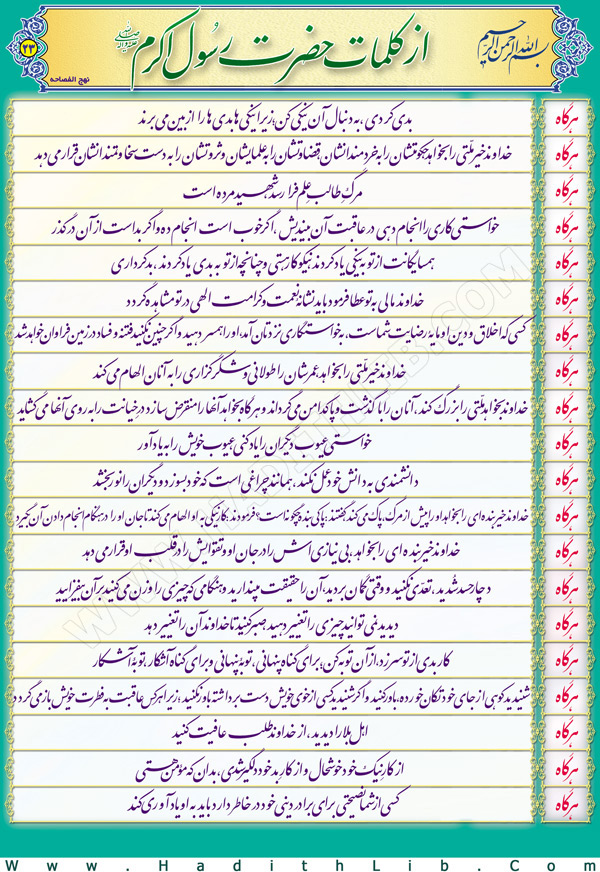 بسم الله الرحمن الرحیم
از کلمات حضرت رسول اکرم
۲۳
نهج الفصاحه
هرگاه بدی کردی، به دنبال آن نیکی کن؛ زیرا نیکی ها بدی ها را از بین می برند
هرگاه خداوند خیر ملّتی را بخواهد حکومتشان را به خردمندانشان، قضاوتشان را به علمایشان و ثروتشان را به دست سخاوتمندانشان قرار می دهد
هرگاه مرگ طالب علم فرا رسد شهید مرده است
هرگاه خواستی کاری را انجام دهی در عاقبت آن بیندیش، اگر خوب است انجام ده و اگر بد است از آن در گذر
هرگاه همسایگانت از تو به نیکی یاد کردند نیکو کار هستی و چنانچه از تو به بدی یاد کردند، بد کرداری
هرگاه خداوند مالی به تو عطا فرمود باید نشانه نعمت و کرامت الهی در تو مشاهده گردد
هرگاه کسی که اخلاق و دین او مایه رضایت شماست، به خواستگاری نزدتان آمد، او را همسر دهید و اگر چنین نکنید فتنه و فساد در زمین فراوان خواهد شد
هرگاه خداوند خیر ملّتی را بخواهد عمرشان را طولانی و شکرگزاری را به آنان الهام می کند
هرگاه خداوند بخواهد ملّتی را بزرگ کند، آنان را با گذشت و پاکدامن می گرداند و هرگاه بخواهد آنها را منقرض سازد در خیانت را به روی آنها می گشاید
هرگاه خواستی عیوب دیگران را یاد کنی عیوب خویش را به یاد آور
هرگاه دانشمندی به دانش خود عمل نکند، همانند چراغی است که خود بسوزد و دیگران را نور بخشد
هرگاه خداوند خیر بنده ای را بخواهد او را پیش از مرگ، پاک می کند گفتند: پاکی بنده چگونه است؟ فرمودند: کار نیکی به او الهام می کند تا جان او را در هنگام انجام دادن آن بگیرد
هرگاه خداوند خیر بنده ای را بخواهد، بی نیازی اش را در جان او و تقوایش را در قلب او قرار می دهد
هرگاه دچار حسد شدید، تعدّی نکنید و وقتی گمان بردید، آن را حقیقت مپندارید و هنگامی که چیزی را وزن می کنید بر آن بیفزایید
هرگاه دیدید نمی توانید چیزی را تغییر دهید صبر کنید تا خداوند آن را تغییر دهد
هرگاه کار بدی از تو سر زد، از آن توبه کن؛ برای گناه پنهانی، توبۀ پنهانی و برای گناه آشکار، توبۀ آشکار
هرگاه شنیدید کوهی از جای خود تکان خورده، باور کنید و اگر شنیدید کسی از خوی خویش دست برداشته باور نکنید؛ زیرا هر کس عاقبت به فطرت خویش باز می گردد
هرگاه اهل بلا را دیدید، از خداوند طلب عافیت کنید
هرگاه از کار نیک خود خوشحال و از کار بد خود دلگیر شدی، بدان که مؤمن هستی
هرگاه کسی از شما نصیحتی برای برادر دینی خود در خاطر دارد باید به او یادآوری کند
www.HadithLib.Com